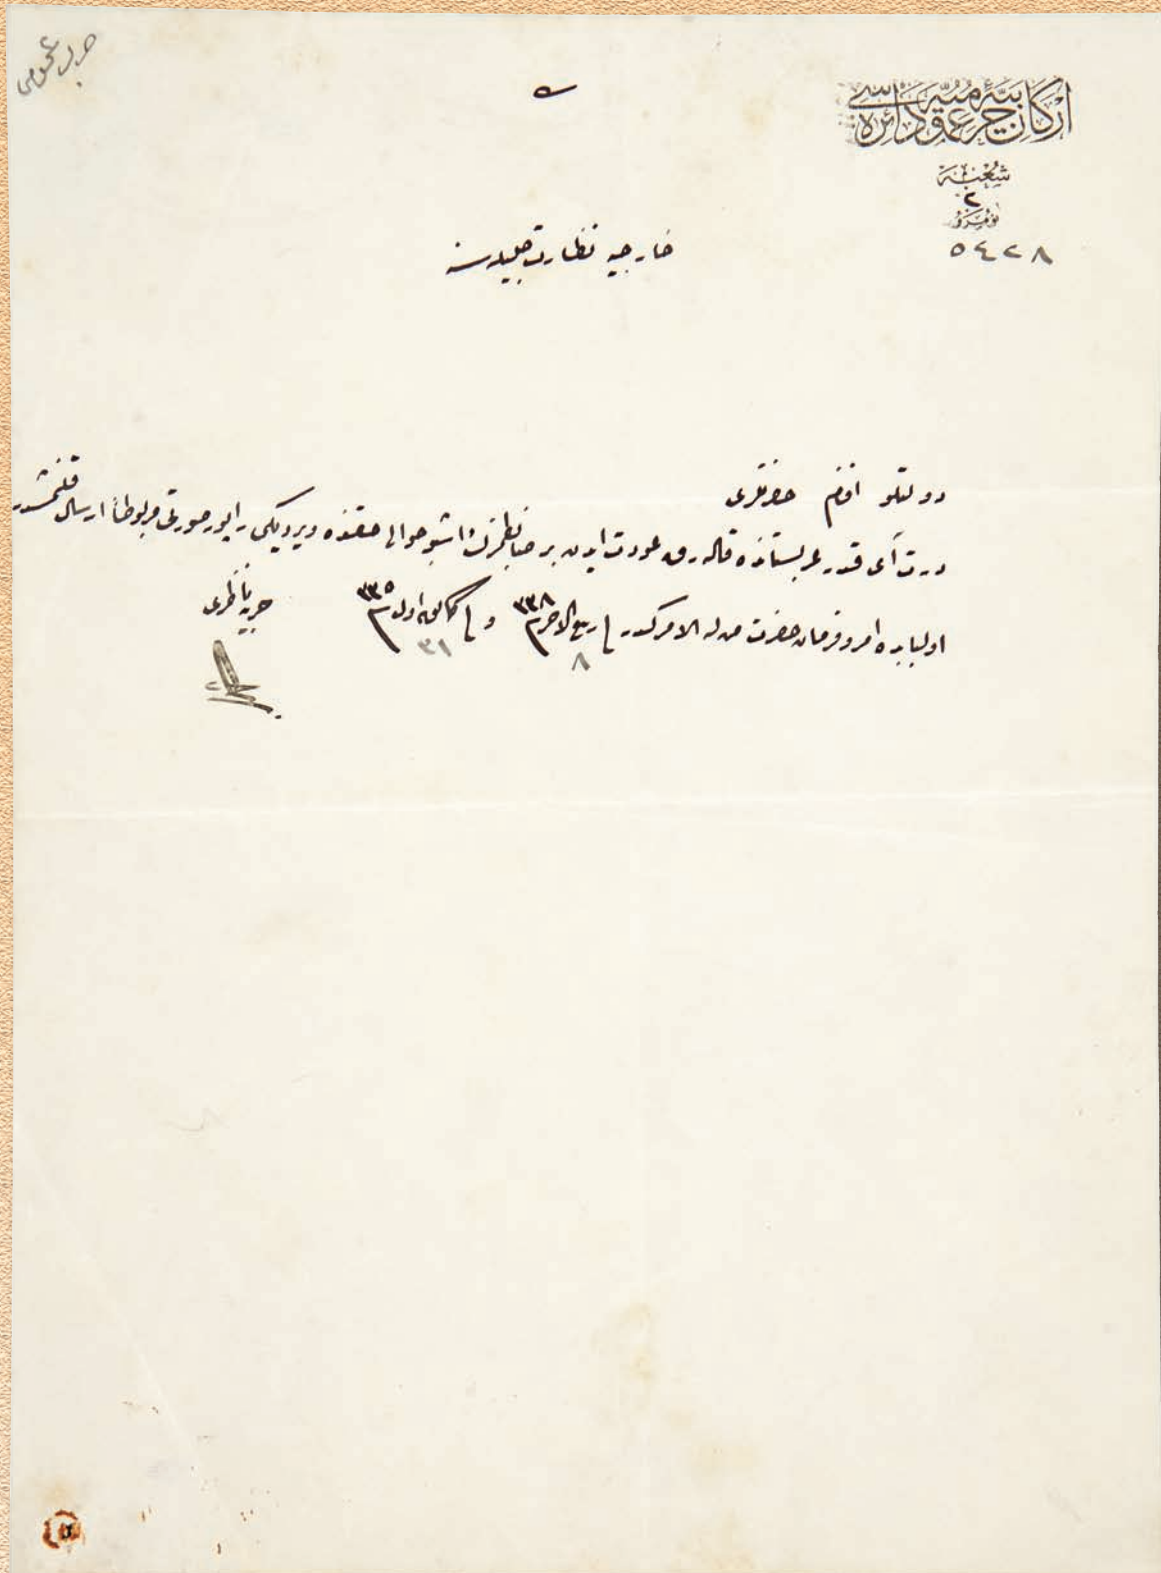 حرب عمومی
اركان حربیهٔ عمومیه دائره سی
شعبه
٢
نومرو
٥٤٢٨
خارجیه نظارت جلیله سنه
دولتلو افندم حضرتلری
درت آی قدر عربستانده قاله رق عودت ایدن بر ضابطمزك اشبو حوالی حقنده ویردیكی راپور صورتی مربوطاً ارسال قلنمشدر
اولبابده امر و فرمان حضرت من له الامركدر فی ٨ ربیع الاخر ٣٣٨ و فی ٣١ كانون اول ٣٣٥
حربیه ناظری